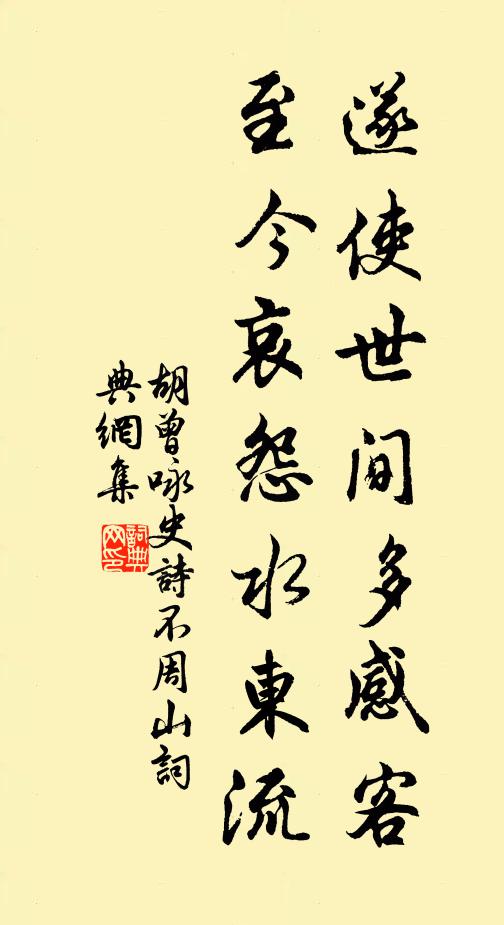 遂使世间多感客
至今哀怨水東流
胡曾咏史詩不周山詞
典網集
詞典
网印